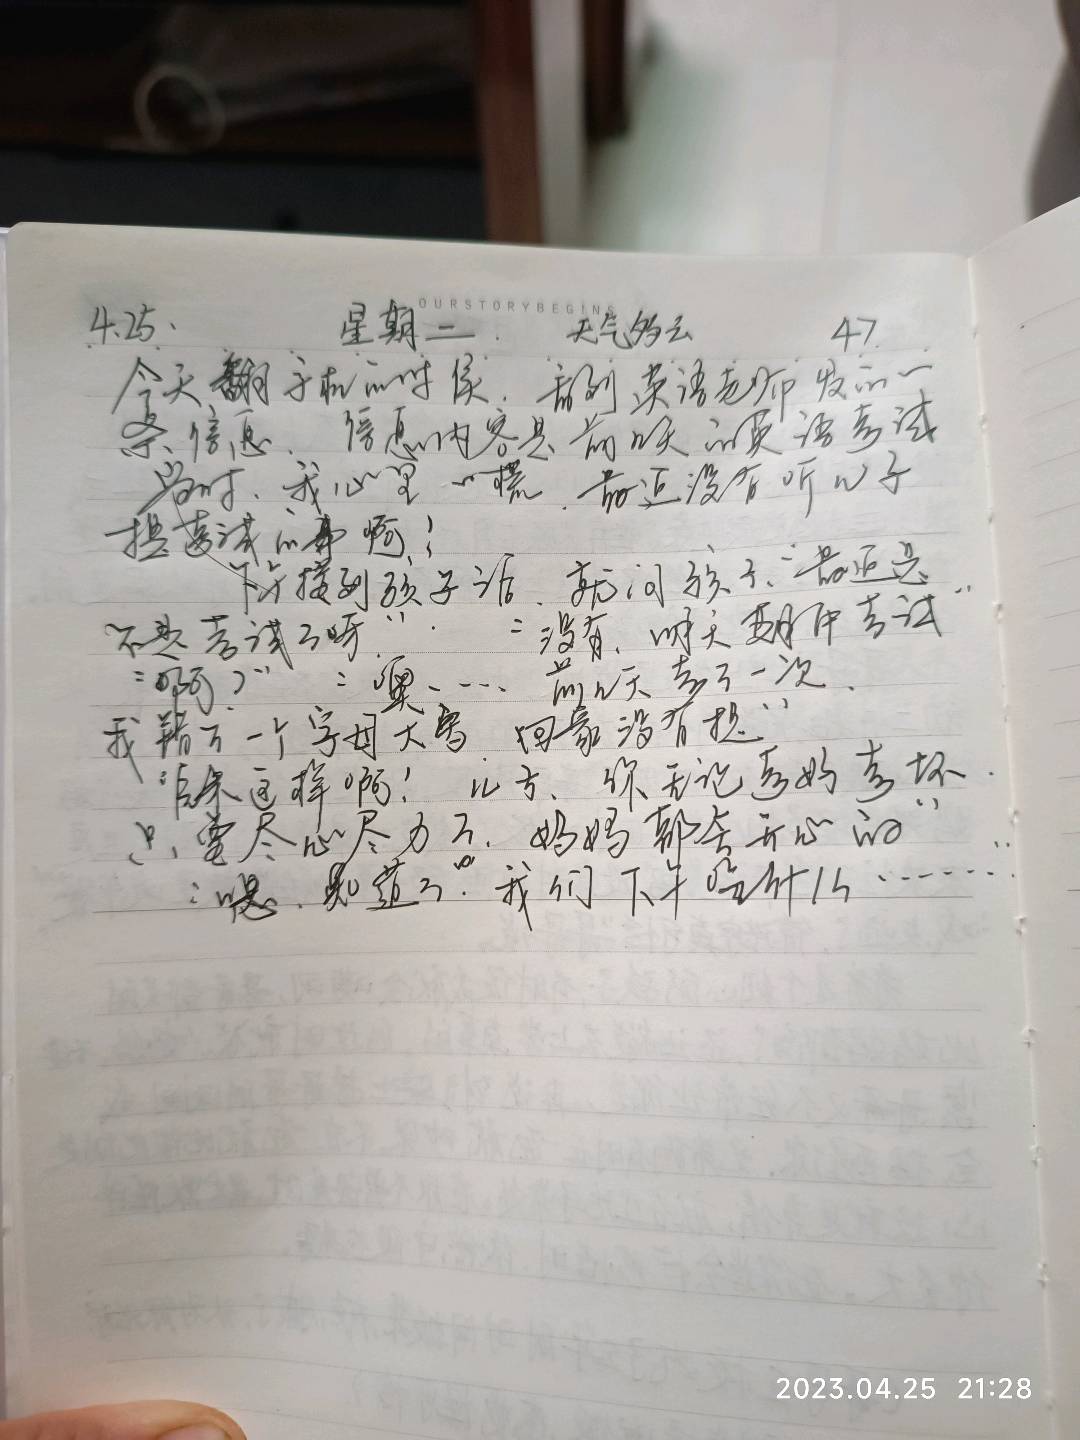 OURSTORYBEGINS
4.25. 星期二. 天气多云 47
今天翻手机的时侯. 看到英语老师发的一
条信息. 信息内容是前几天的英语考试
当时、我心里一慌. 最近没有听儿子
提考试的事啊！
下午接到孩子后. 就问孩子、“最近是
不是考试了呀”. “没有、明天期中考试”
“啊？” “噢..... 前几天考了一次.
我错了一个字母大写 回家没有提”
“后来这样啊！ 儿子、你无论考好考坏.
只要尽心尽力了. 妈妈都会开心的”
“嗯. 知道了”. 我们下午吃什么.......
2023.04.25 21:28